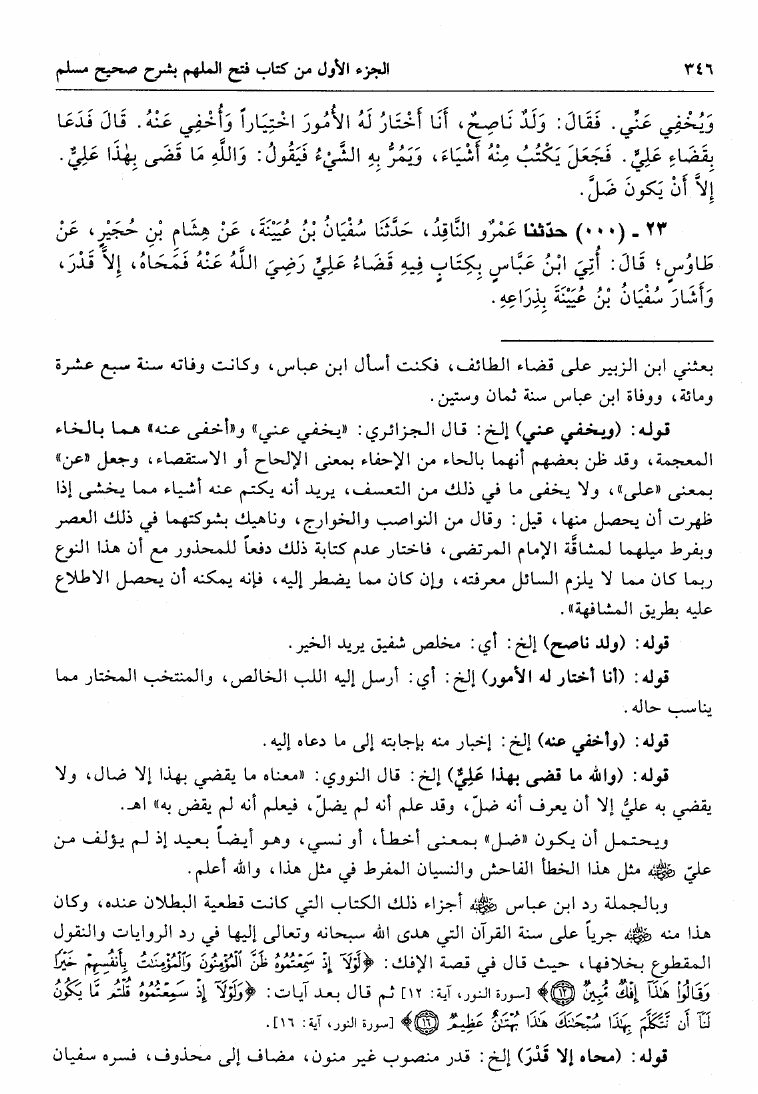 ٣٤٦ الجزء الأول من كتاب فتح الملهم بشرح صحيح مسلم
وَيُخْفِي عَنِّي. فَقَالَ: وَلَدٌ نَاصِحٌ، أَنَا أَخْتَارُ لَهُ الأُمُورَ اخْتِيَاراً وَأُخْفِي عَنْهُ. قَالَ فَدَعَا
بِقَضَاءِ عَلِيٍّ. فَجَعَلَ يَكْتُبُ مِنْهُ أَشْيَاءَ، وَيَمُرُّ بِهِ الشَّيْءُ فَيَقُولُ: وَاللَّهِ مَا قَضَى بِهٰذَا عَلِيٌّ.
إِلاَّ أَنْ يَكُونَ ضَلَّ.
٢٣ - (٠٠٠) حدّثنا عَمْرٌو النَّاقِدُ، حَدَّثَنَا سُفْيَانُ بْنُ عُيَيْنَةَ، عَنْ هِشَامِ بْنِ حُجَيْرٍ، عَنْ
طَاوُسٍ؛ قَالَ: أُتِيَ ابْنُ عَبَّاسٍ بِكِتَابٍ فِيهِ قَضَاءُ عَلِيٍّ رَضِيَ اللَّهُ عَنْهُ فَمَحَاهُ، إِلاَّ قَدْرَ،
وَأَشَارَ سُفْيَانُ بْنُ عُيَيْنَةَ بِذِرَاعِهِ.
بعثني ابن الزبير على قضاء الطائف، فكنت أسأل ابن عباس، وكانت وفاته سنة سبع عشرة
ومائة، ووفاة ابن عباس سنة ثمان وستين.
قوله: (ويخفي عني) إلخ: قال الجزائري: «يخفي عني» و«أخفى عنه» هما بالخاء
المعجمة، وقد ظن بعضهم أنهما بالحاء من الإحفاء بمعنى الإلحاح أو الاستقصاء، وجعل «عن»
بمعنى «على»، ولا يخفى ما في ذلك من التعسف، يريد أنه يكتم عنه أشياء مما يخشى إذا
ظهرت أن يحصل منها، قيل: وقال من النواصب والخوارج، وناهيك بشوكتهما في ذلك العصر
وبفرط ميلهما لمشاقَّة الإمام المرتضى، فاختار عدم كتابة ذلك دفعاً للمحذور مع أن هذا النوع
ربما كان مما لا يلزم السائل معرفته، وإن كان مما يضطر إليه، فإنه يمكنه أن يحصل الاطلاع
عليه بطريق المشافهة».
قوله: (ولد ناصح) إلخ: أي: مخلص شفيق يريد الخير.
قوله: (أنا أختار له الأمور) إلخ: أي: أرسل إليه اللب الخالص، والمنتخب المختار مما
يناسب حاله.
قوله: (وأخفي عنه) إلخ: إخبار منه بإجابته إلى ما دعاه إليه.
قوله: (والله ما قضى بهذا عَلِيٌّ) إلخ: قال النووي: «معناه ما يقضي بهذا إلا ضال، ولا
يقضي به عليٌّ إلا أن يعرف أنه ضلّ، وقد علم أنه لم يضلّ، فيعلم أنه لم يقض به» اهـ.
ويحتمل أن يكون «ضل» بمعنى أخطأ، أو نسي، وهو أيضاً بعيد إذ لم يؤلف من
عليّ رضي الله عنه مثل هذا الخطأ الفاحش والنسيان المفرط في مثل هذا، والله أعلم.
وبالجملة رد ابن عباس رضي الله عنه أجزاء ذلك الكتاب التي كانت قطعية البطلان عنده، وكان
هذا منه رضي الله عنه جرياً على سنة القرآن التي هدى الله سبحانه وتعالى إليها في رد الروايات والنقول
المقطوع بخلافها، حيث قال في قصة الإفك: ﴿لَّوْلَآ إِذْ سَمِعْتُمُوهُ ظَنَّ ٱلْمُؤْمِنُونَ وَٱلْمُؤْمِنَٰتُ بِأَنفُسِهِمْ خَيْرًا
وَقَالُوا۟ هَٰذَآ إِفْكٌ مُّبِينٌ ۝١٢﴾ [سورة النور، آية: ١٢] ثم قال بعد آيات: ﴿وَلَوْلَآ إِذْ سَمِعْتُمُوهُ قُلْتُم مَّا يَكُونُ
لَنَآ أَن نَّتَكَلَّمَ بِهَٰذَا سُبْحَٰنَكَ هَٰذَا بُهْتَٰنٌ عَظِيمٌ ۝١٦﴾ [سورة النور، آية: ١٦].
قوله: (محاه إلا قَدْرَ) إلخ: قدر منصوب غير منون، مضاف إلى محذوف، فسره سفيان